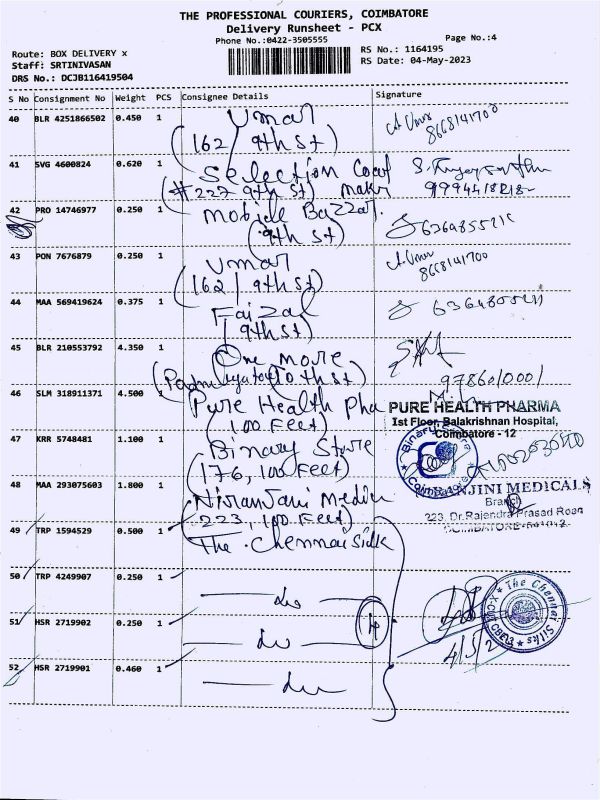 THE PROFESSIONAL COURIERS, COIMBATORE
Delivery Runsheet - PCX
Phone No.:0422-3505555
Page No.:4
Route: BOX DELIVERY x
RS No.: 1164195
Staff: SRTINIVASAN
RS Date: 04-May-2023
DRS No.: DCJB116419504
S No Consignment No Weight PCS Consignee Details Signature
40 BLR 4251866502 0.450 1 Umar
8668141700
(162/ 9th St)
41 SVG 4600824 0.620 1 Selection Coat
(#227 9th St) Makr
42 PRO 14746977 0.250 1 Mobile Bazzar.
(9th St)
43 PON 7676879 0.250 1 Umar
8668141700
(162/ 9th St)
44 MAA 569419624 0.375 1 Faizal
(9th St)
45 BLR 210553792 4.350 1 One more
(10th St)
9786010001
46 SLM 318911371 4.500 1 Pure Health Pha
(100 Feet)
PURE HEALTH PHARMA
1st Floor, Balakrishnan Hospital,
Coimbatore - 12
47 KRR 5748481 1.100 1 Binary Store
(176, 100 Feet)
Binary
Coimbatore
48 MAA 293075603 1.800 1 Niranjani Medica
223, 100 Feet)
NJINI MEDICALS
Branch
223, Dr.Rajendra Prasad Road
COIMBATORE-641012
49 TRP 1594529 0.500 1 The Chennai Silk
50 TRP 4249907 0.250 1 do
51 HSR 2719902 0.250 1 do
4
The Chennai Silks
4/5/2
52 HSR 2719901 0.460 1 do